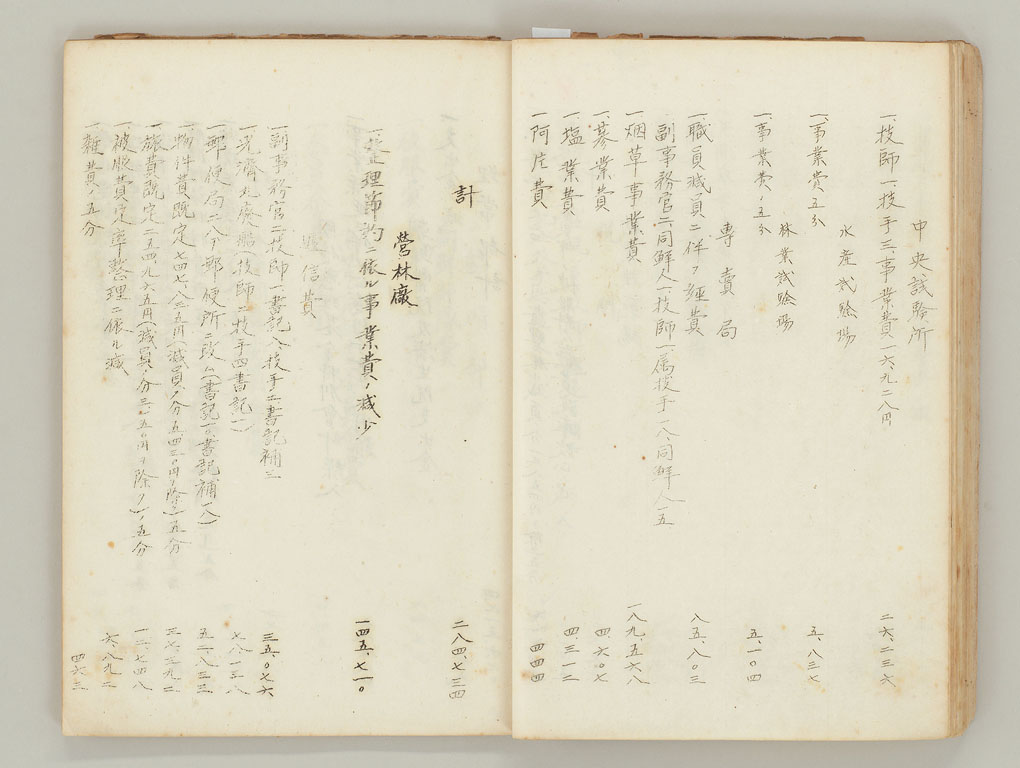 中央試験所
一、技師一、技手三、事業費一六、九二八円 二六、二三六
水産試験場
一、事業費五分 五、八三七
林業試験場
一、事業費ノ五分 五、一〇四
専賣局
一、職員減員ニ伴フ経費 八五、八〇三
副事務官二、同鮮人一、技師一、属技手一八、同鮮人一五
一、烟草事業費 一八九、五六八
一、蔘業費 四、六〇七
一、塩業費 四、三一二
一、阿片費 四四四
計 二八四、七三四
營林廠
一、整理節約ニ依ル事業費ノ減少 一四五、七一〇
逓信費
一、副事務官二、技師一、書記八、技手二、書記補三 三五、〇七六
一、光濟丸廃船(技師二、技手四、書記一) 七八、一三八
一、郵便局二八ヲ郵便所ニ改ム(書記一、書記補一八) 五二、八二三
一、物件費既定七四七、八 五円(減員ノ分五四二〇円ヲ除ク)ノ五分 三七、三九二
一、旅費既定二五四、九六五円(減員ノ分三、五〇円ヲ除ク)ノ五分 一二、七四八
一、被服費定率整理ニ依ル減 六、八九二
一、雑費ノ五分 四六三